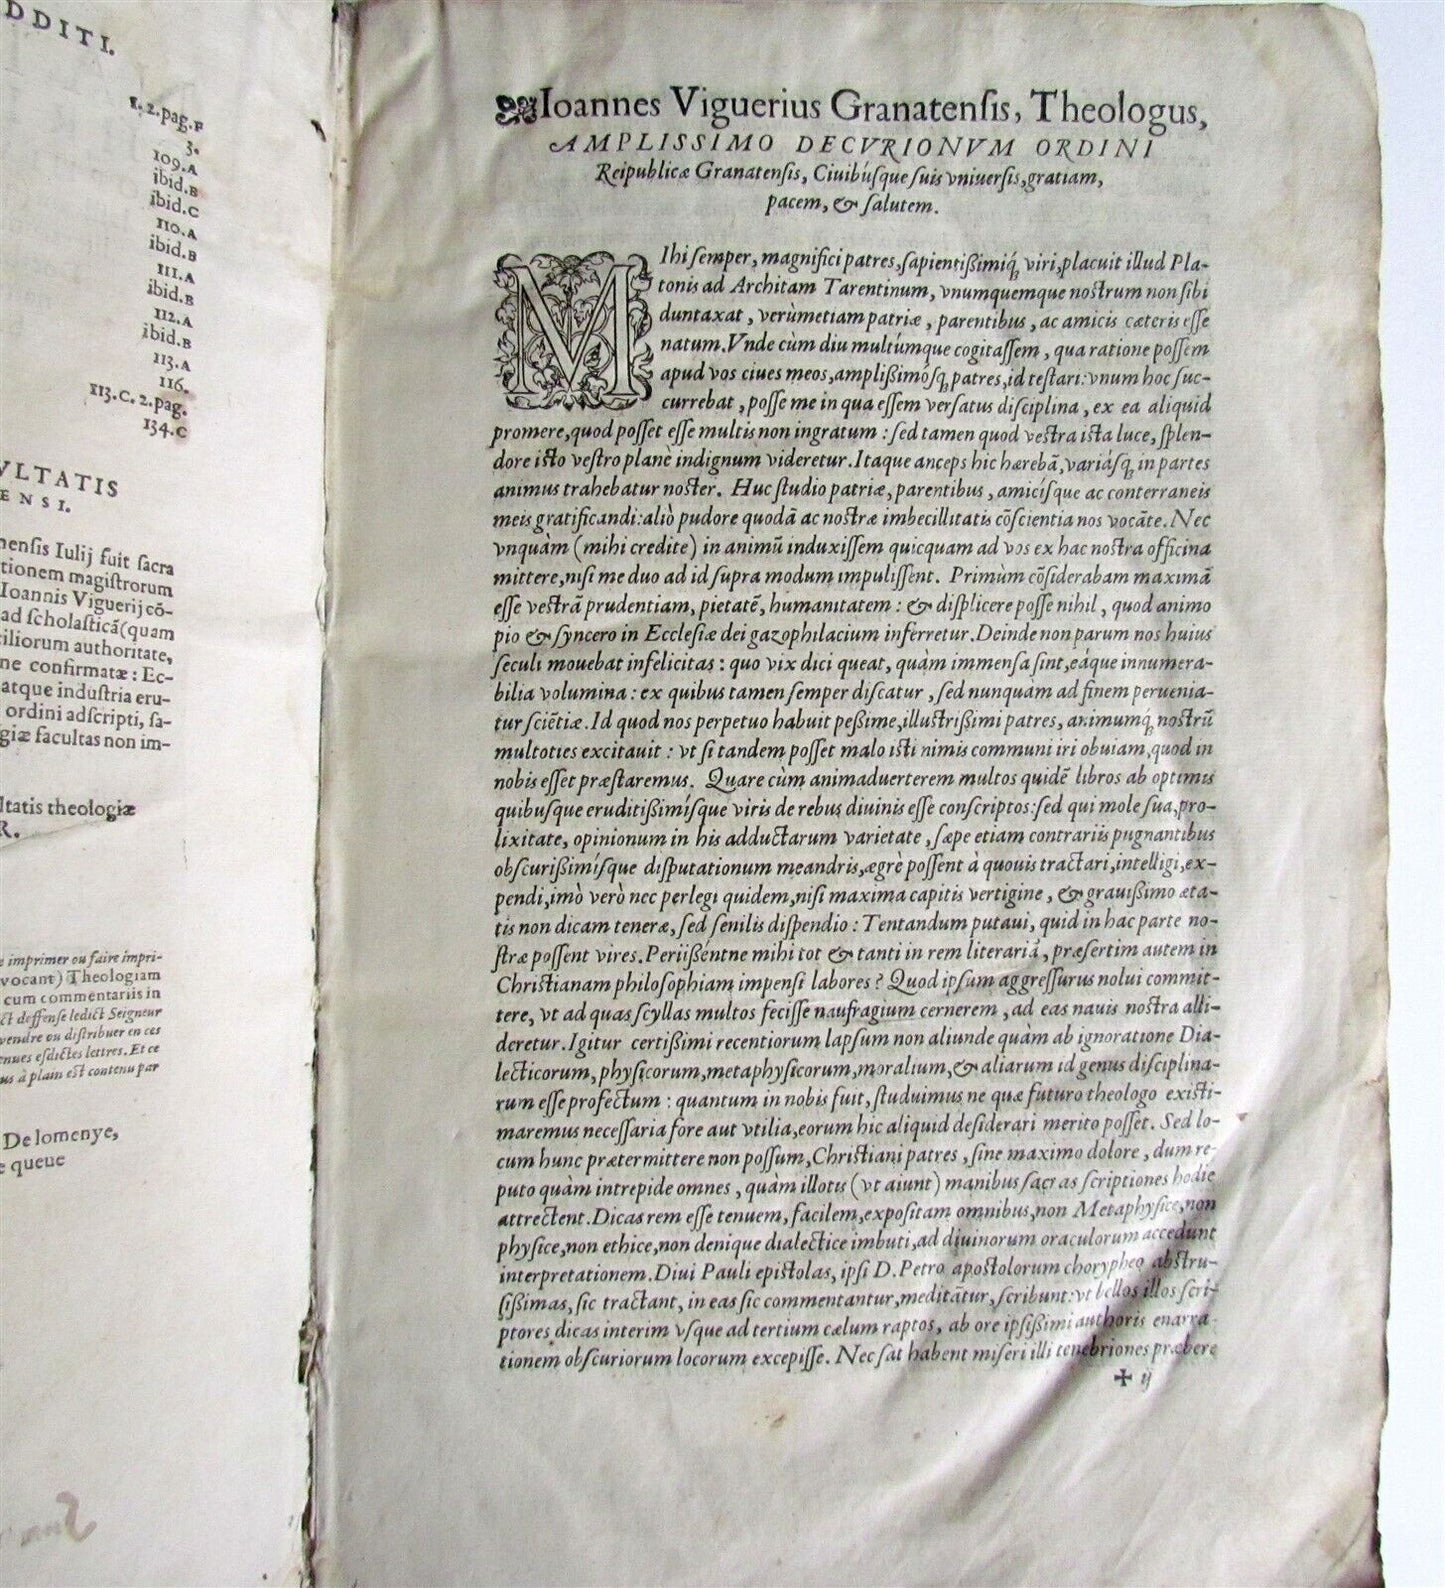 DDITI.
1. 2. pag. F
3.
109. A
ibid. B
ibid. C
110. A
ibid. B
111. A
ibid. B
112. A
ibid. B
113. A
116.
113. C. 2. pag.
134. C
VLTATIS
ENSI.
nensis Iulij fuit sacra
tionem magistrorum
Ioannis Viguerij cō-
ad scholasticā (quam
ciliorum authoritate,
ne confirmatæ : Ec-
atque industria eru-
ordini adscripti, sa-
giæ facultas non im-
ltatis theologiæ
R.
e imprimer ou faire impri-
vocant) Theologiam
cum commentariis in
ct deffense ledict Seigneur
vendre ou distribuer en ces
enues esdictes lettres. Et ce
us à plain est contenu par
De lomenye,
e queue
Ioannes Viguerius Granatensis, Theologus,
AMPLISSIMO DECVRIONVM ORDINI
Reipublicæ Granatensis, Ciuibúsque suis vniuersis, gratiam,
pacem, & salutem.
MIhi semper, magnifici patres, sapientißimiq́; viri, placuit illud Pla-
tonis ad Architam Tarentinum, vnumquemque nostrum non sibi
duntaxat, verùmetiam patriæ, parentibus, ac amicis cæteris esse
natum. Vnde cùm diu multúmque cogitassem, qua ratione possem
apud vos ciues meos, amplißimósq; patres, id testari: vnum hoc suc-
currebat, posse me in qua essem versatus disciplina, ex ea aliquid
promere, quod posset esse multis non ingratum : sed tamen quod vestra ista luce, splen-
dore isto vestro planè indignum videretur. Itaque anceps hic hærebā, variásq; in partes
animus trahebatur noster. Huc studio patriæ, parentibus, amicísque ac conterraneis
meis gratificandi: aliò pudore quodā ac nostræ imbecillitatis cōscientia nos vocāte. Nec
vnquàm (mihi credite) in animū induxissem quicquam ad vos ex hac nostra officina
mittere, nisi me duo ad id supra modum impulissent. Primùm cōsiderabam maximā
esse vestrā prudentiam, pietatē, humanitatem : & displicere posse nihil, quod animo
pio & syncero in Ecclesiæ dei gazophilacium inferretur. Deinde non parum nos huius
seculi mouebat infelicitas : quo vix dici queat, quàm immensa sint, eáque innumera-
bilia volumina : ex quibus tamen semper discatur, sed nunquam ad finem perueniа-
tur sciētiæ. Id quod nos perpetuo habuit peßime, illustrißimi patres, animumq́; nostrū
multoties excitauit : vt si tandem posset malo isti nimis communi iri obuiam, quod in
nobis esset præstaremus. Quare cùm animaduerterem multos quidē libros ab optimis
quibusque eruditißimísque viris de rebus diuinis esse conscriptos: sed qui mole sua, pro-
lixitate, opinionum in his adductarum varietate, sæpe etiam contrariis pugnantibus
obscurißimísque disputationum meandris, ægrè possent à quouis tractari, intelligi, ex-
pendi, imò verò nec perlegi quidem, nisi maxima capitis vertigine, & grauißimo æta-
tis non dicam teneræ, sed senilis dispendio : Tentandum putaui, quid in hac parte no-
stræ possent vires. Periißéntne mihi tot & tanti in rem literariā, præsertim autem in
Christianam philosophiam impensi labores? Quod ipsum aggressurus nolui commit-
tere, vt ad quas scyllas multos fecisse naufragium cernerem, ad eas nauis nostra alli-
deretur. Igitur certißimi recentiorum lapsum non aliunde quàm ab ignoratione Dia-
lecticorum, physicorum, metaphysicorum, moralium, & aliarum id genus disciplina-
rum esse profectum : quantum in nobis fuit, studuimus ne quæ futuro theologo existi-
maremus necessaria fore aut vtilia, eorum hic aliquid desiderari merito posset. Sed lo-
cum hunc prætermittere non possum, Christiani patres, sine maximo dolore, dum re-
puto quàm intrepide omnes, quàm illotis (vt aiunt) manibus sacras scriptiones hodie
attrectent. Dicas rem esse tenuem, facilem, expositam omnibus, non Metaphysice, non
physice, non ethice, non denique dialectice imbuti, ad diuinorum oraculorum accedunt
interpretationem. Diui Pauli epistolas, ipsi D. Petro apostolorum chorypheo abstru-
sißimas, sic tractant, in eas sic commentantur, meditātur, scribunt: vt bellos illos scri-
ptores dicas interim vsque ad tertium cælum raptos, ab ore ipsißimi authoris enarra-
tionem obscuriorum locorum excepisse. Nec sat habent miseri illi tenebriones præbere
✠ ij